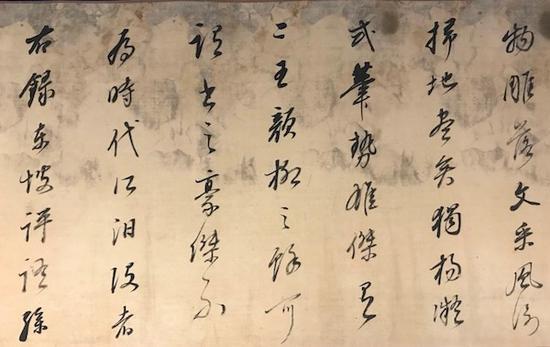 物雕落文采風流
掃地盡矣獨楊凝
式筆勢雄傑有
二王顏柳之餘可
謂書之豪傑不
為時代所汨没者
右錄東坡評語